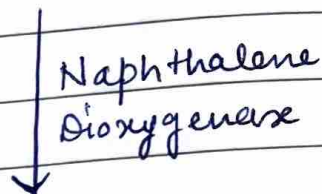 Naphthalene
Dioxygenase